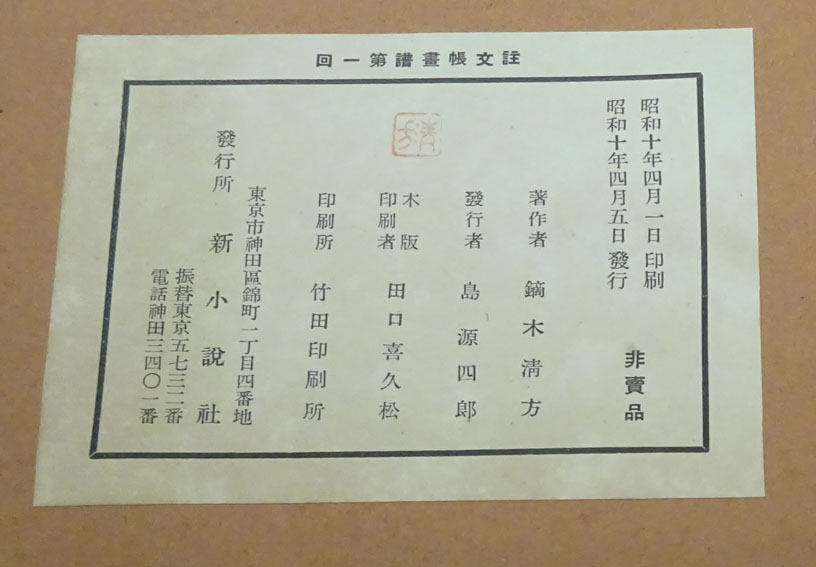 註文帳畫譜第一回
昭和十年四月一日印刷
昭和十年四月五日發行
非賣品
著作者 鏑木淸方
發行者 島源四郎
木版印刷者 田口喜久松
印刷所 竹田印刷所
東京市神田區錦町一丁目四番地
發行所 新小說社
振替東京五七三二番
電話神田三四〇一番